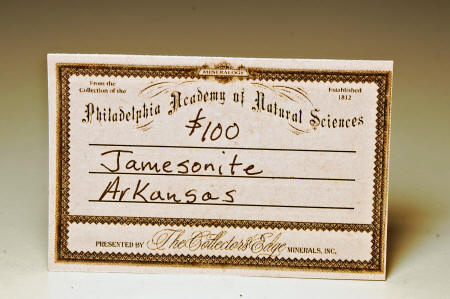 MINERALOGY
From the Collection of the
Established 1812
Philadelphia Academy of Natural Sciences
$100
Jamesonite
Arkansas
PRESENTED BY The Collector's Edge MINERALS, INC.